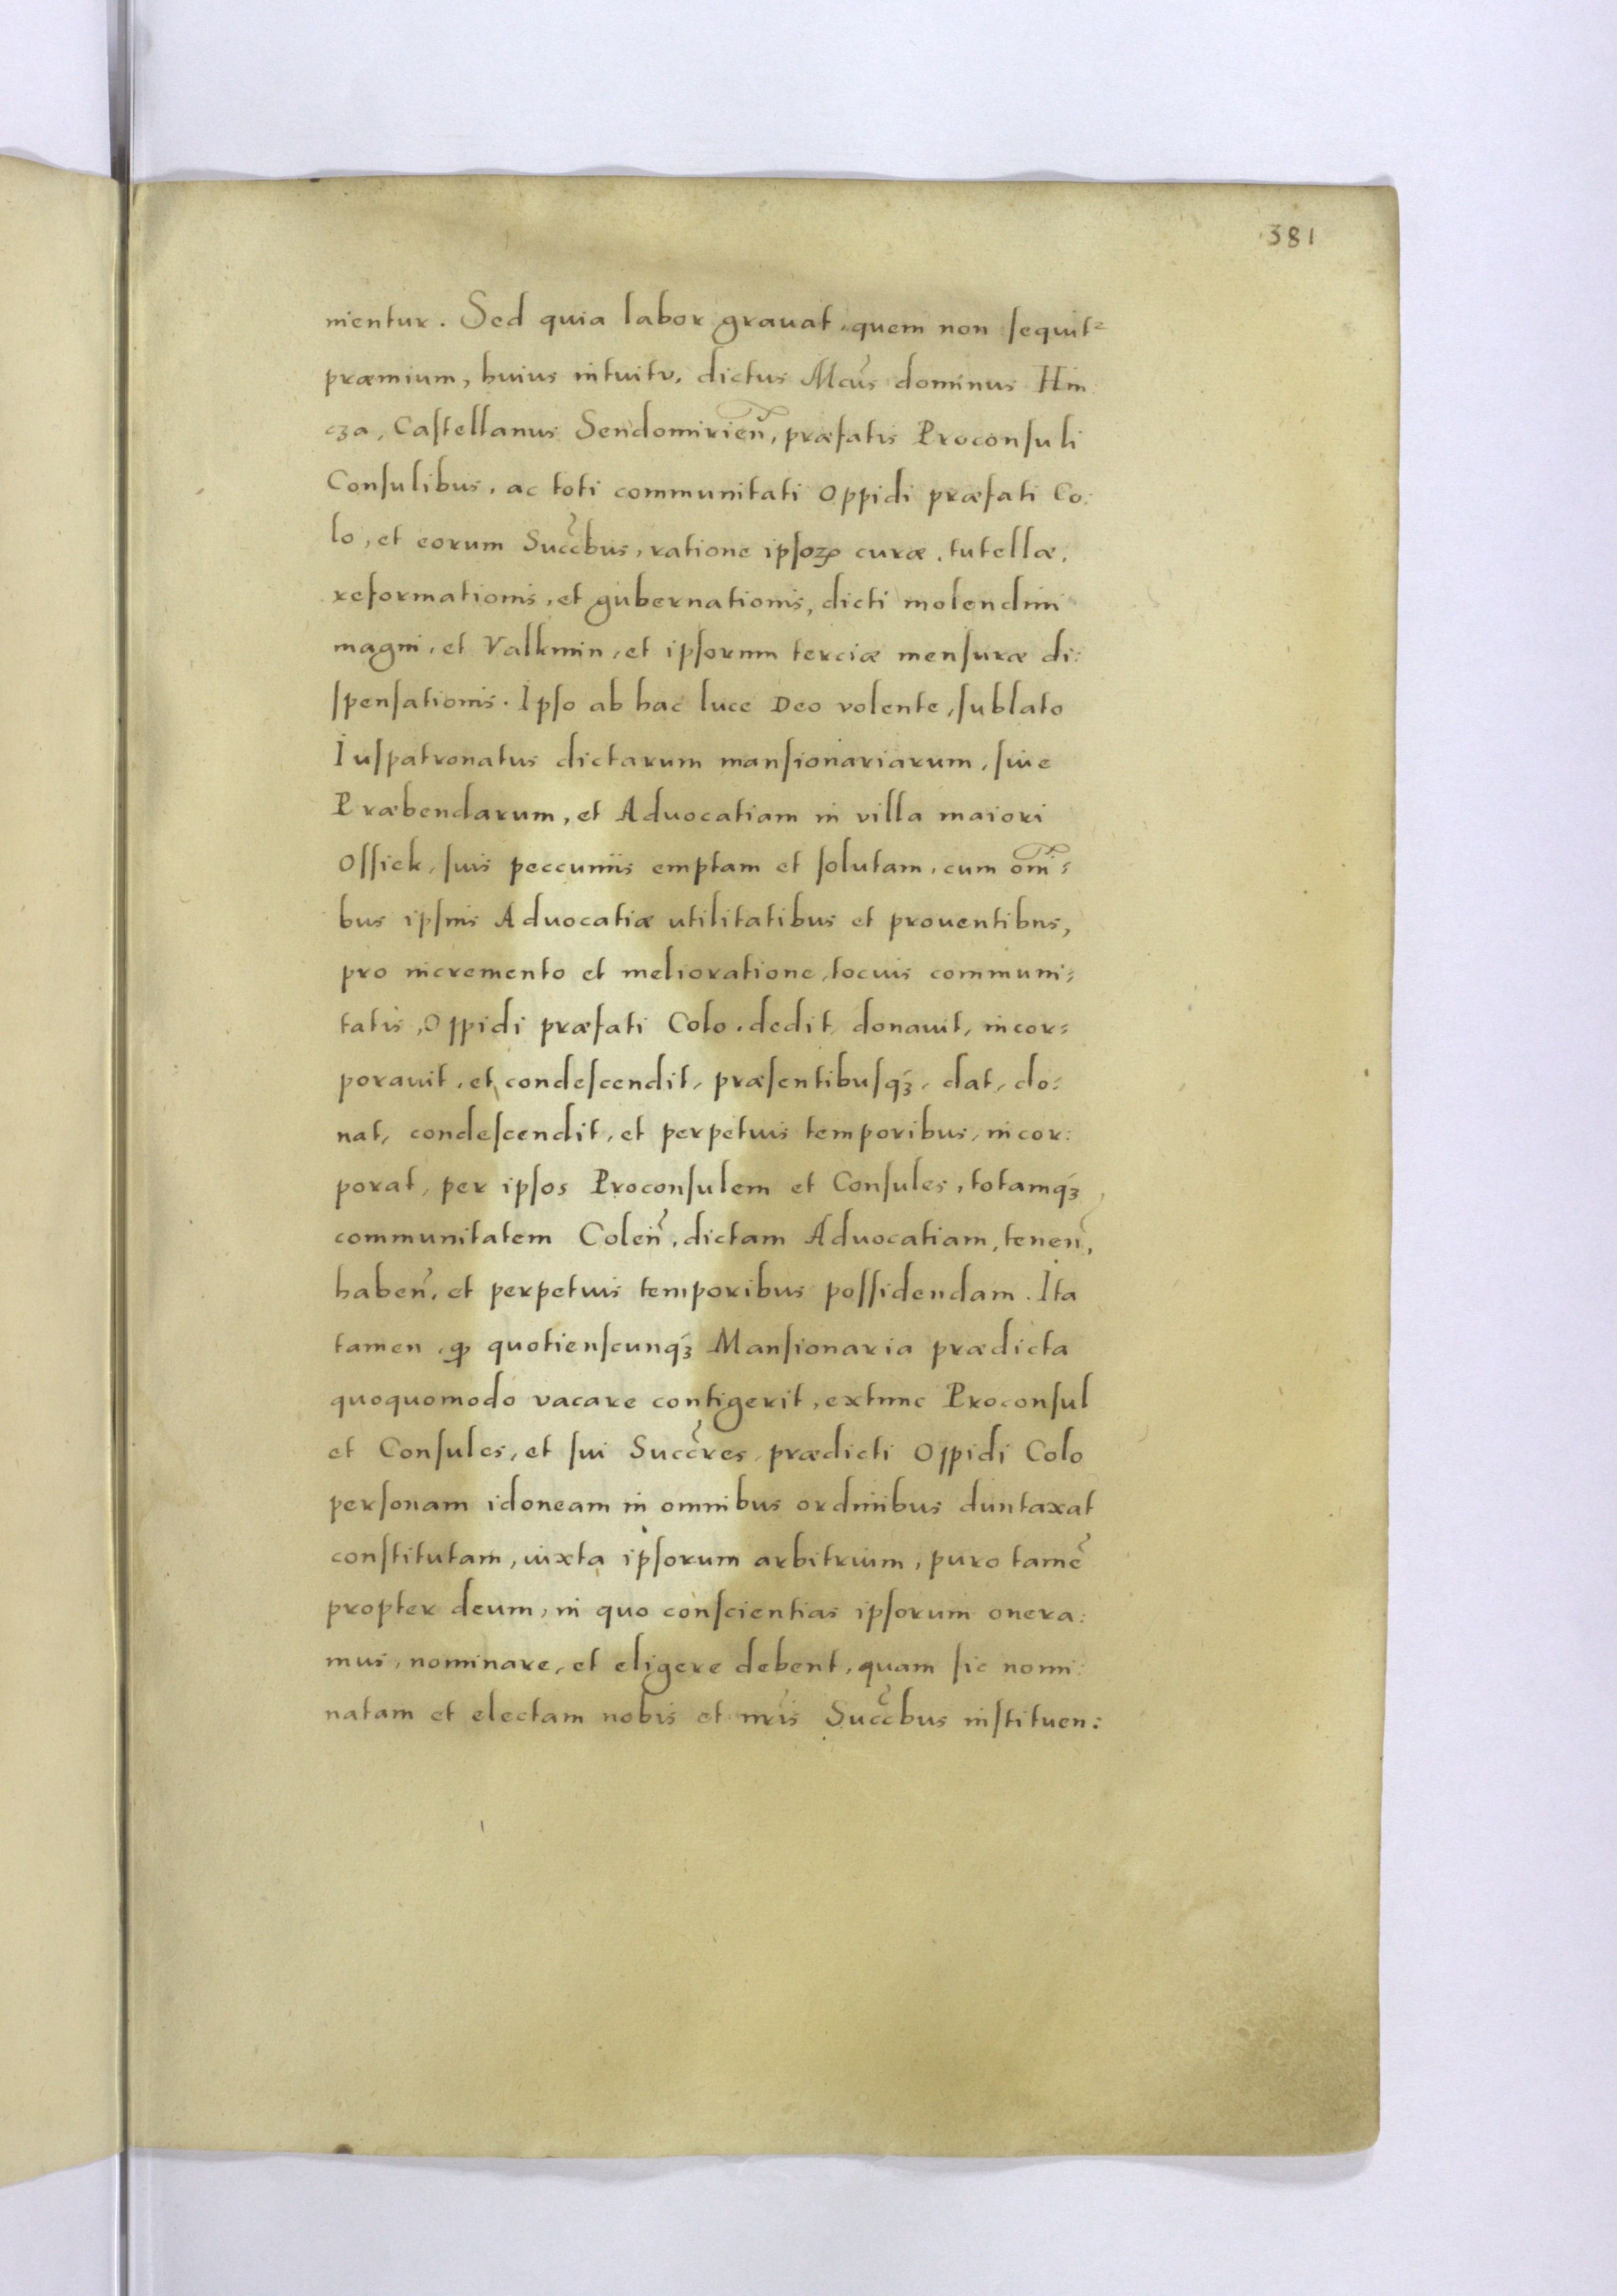 381
nientur. Sed quia labor grauat, quem non sequit᷑
præmium, huius intuitu, dictus Mcus̃ dominus Hin
cza, Castellanus Sendomirien̄, præfatis Proconsuli
Consulibus, ac toti communitati Oppidi præfati Co:
lo, et eorum Succ̃bus, ratione ipsoꝝ curæ, tutellæ,
reformationis, et gubernationis, dicti molendini
magni, et Valkmin, et ipsorum terciæ mensuræ di:
spensationis. Ipso ab hac luce Deo volente, sublato
Iuspatronatus dictarum mansionariarum, siue
Præbendarum, et Aduocatiam in villa maiori
Ossiek, suis peccuniis emptam et solutam, cum om̄i:
bus ipsius Aduocatiæ utilitatibus et prouentibus,
pro incremento et melioratione, tocius communi:
tatis, Oppidi præfati Colo, dedit, donauit, incor:
porauit, et condescendit, præsentibusqꝫ, dat, do:
nat, condescendit, et perpetuis temporibus, incor:
porat, per ipsos Proconsulem et Consules, totamqꝫ
communitatem Colen̄, dictam Aduocatiam, tenen̄,
haben̄, et perpetuis temporibus possidendam. Ita
tamen, ꝙ quotienscunqꝫ Mansionaria prædicta
quoquomodo vacare contigerit, extunc Proconsul
et Consules, et sui Succ̃res, prædicti Oppidi Colo
personam idoneam in omnibus ordinibus duntaxat
constitutam, iuxta ipsorum arbitrium, puro tamē
propter deum, in quo conscientias ipsorum onera:
mus, nominare, et eligere debent, quam sic nomi:
natam et electam nobis et nr̃is Succ̃bus instituen: